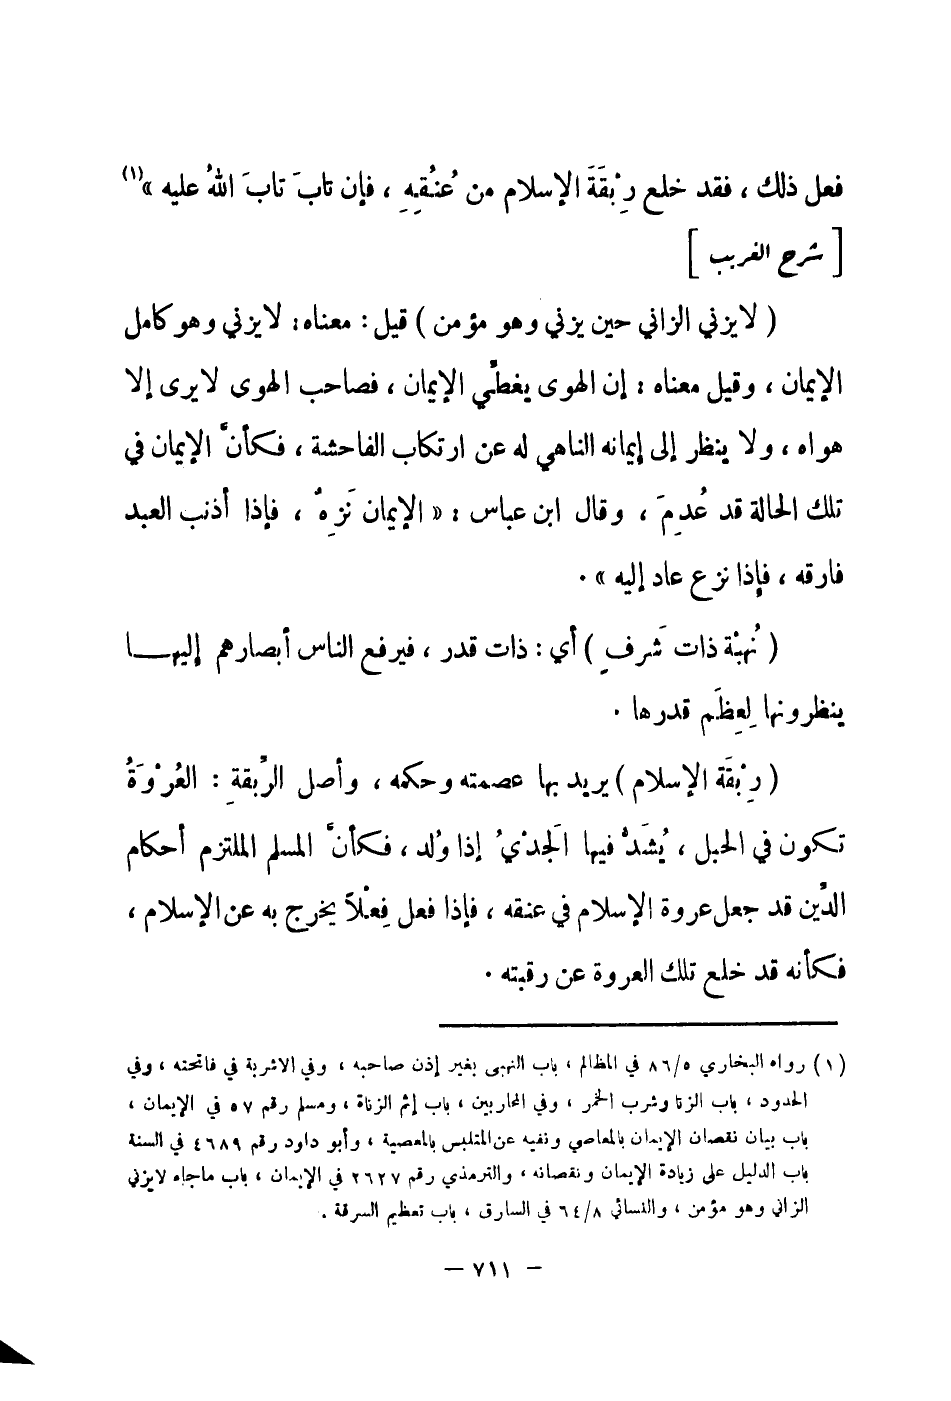 فعل ذلك ، فقد خلع رِبْقَةَ الإسلام من عُنُقِهِ ، فإن تابَ تابَ اللهُ عليه »(١)
[ شرح الغريب ]
( لا يزني الزاني حين يزني وهو مؤمن ) قيل : معناه : لا يزني وهو كامل
الإيمان ، وقيل معناه : إن الهوى يغطِّي الإيمان ، فصاحب الهوى لا يرى إلا
هواه ، ولا ينظر إلى إيمانه الناهي له عن ارتكاب الفاحشة ، فكأنَّ الإيمان في
تلك الحالة قد عُدِمَ ، وقال ابن عباس : « الإيمان نَزِهٌ ، فإذا أذنب العبد
فارقه ، فإذا نزع عاد إليه » .
( نُهبْة ذات شَرفٍ ) أي : ذات قدر ، فيرفع الناس أبصارهم إليهــا
ينظرونها لِعِظَم قدرها .
( رِبْقَة الإسلام ) يريد بها عصمته وحكمه ، وأصل الرِّبقةِ : العُرْوَةُ
تكون في الحبل ، يُشَدُّ فيها الَجدْيُ إذا وُلد ، فكأنَّ المسلم الملتزم أحكام
الدِّين قد جعل عروة الإسلام في عنقه ، فإذا فعل فِعْلاً يخرج به عن الإسلام ،
فكأنه قد خلع تلك العروة عن رقبته .
(١) رواه البخاري ٨٦/٥ في المظالم ، باب النهبى بغير إذن صاحبه ، وفي الاشربة في فاتحته ، وفي
الحدود ، باب الزنا وشرب الخمر ، وفي المحاربين ، باب إثم الزناة ، ومسلم رقم ٥٧ في الإيمان ،
باب بيان نقصان الإيمان بالمعاصي ونفيه عن المتلبس بالمعصية ، وأبو داود رقم ٤٦٨٩ في السنة
باب الدليل على زيادة الإيمان ونقصانه ، والترمذي رقم ٢٦٢٧ في الإيمان ، باب ماجاء لا يزني
الزاني وهو مؤمن ، والنسائي ٦٤/٨ في السارق ، باب تعظيم السرقة .
— ٧١١ —